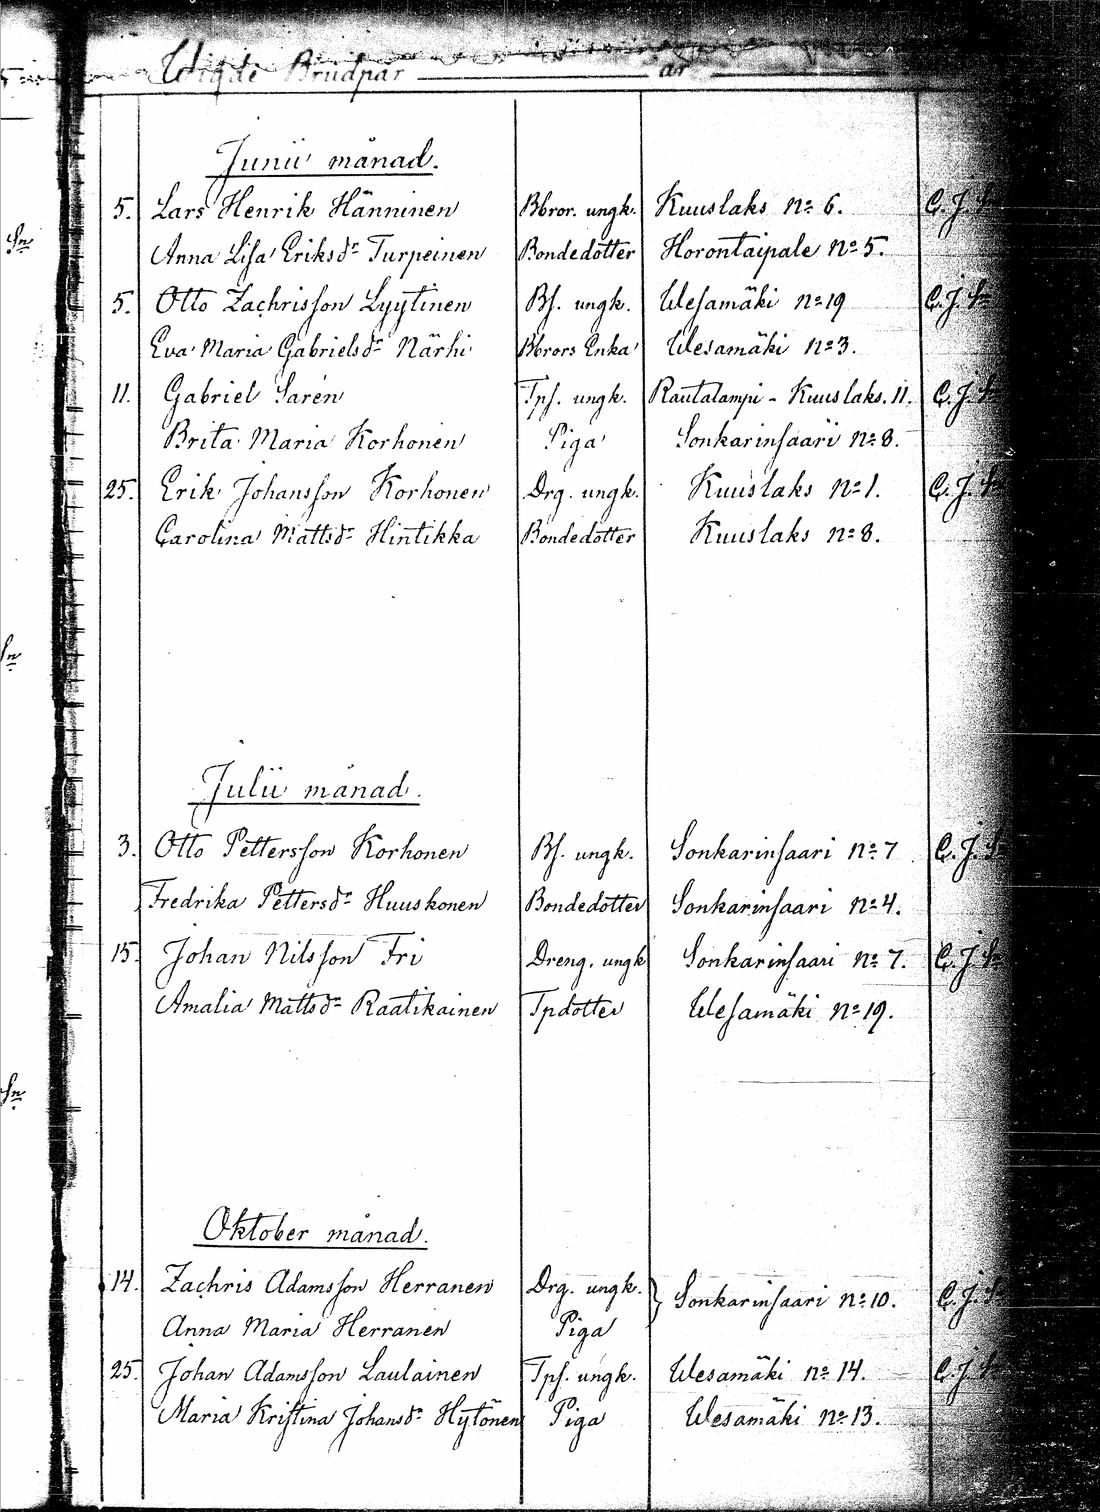 Wigde Brudpar år
Junii månad.
5. Lars Henrik Hänninen Bbror. ungk. Kuuslaks No 6. C. J. Sn
Anna Lisa Eriksdr Turpeinen Bondedotter Horontaipale No 5.
5. Otto Zachrisson Lyytinen Bs. ungk. Wesamäki No 19 C. J. Sn
Eva Maria Gabrielsdr Närhi Bbrors Enka Wesamäki No 3.
11. Gabriel Sarén Tps. ungk. Rautalampi - Kuuslaks. 11. C. J. Sn
Brita Maria Korhonen Piga Sonkarinsaari No 8.
25. Erik Johansson Korhonen Drg. ungk. Kuuslaks No 1. C. J. Sn
Carolina Mattsdr Hintikka Bondedotter Kuuslaks No 8.
Julii månad.
3. Otto Pettersson Korhonen Bs. ungk. Sonkarinsaari No 7 C. J. Sn
Fredrika Pettersdr Huuskonen Bondedotter Sonkarinsaari No 4.
15. Johan Nilsson Fri Dreng. ungk Sonkarinsaari No 7. C. J. Sn
Amalia Mattsdr Raatikainen Tpdotter Wesamäki No 19.
Oktober månad.
14. Zachris Adamsson Herranen Drg. ungk. Sonkarinsaari No 10. C. J. Sn
Anna Maria Herranen Piga
25. Johan Adamsson Laulainen Tps. ungk. Wesamäki No 14. C. J. Sn
Maria Kristina Johansdr Hytönen Piga Wesamäki No 13.